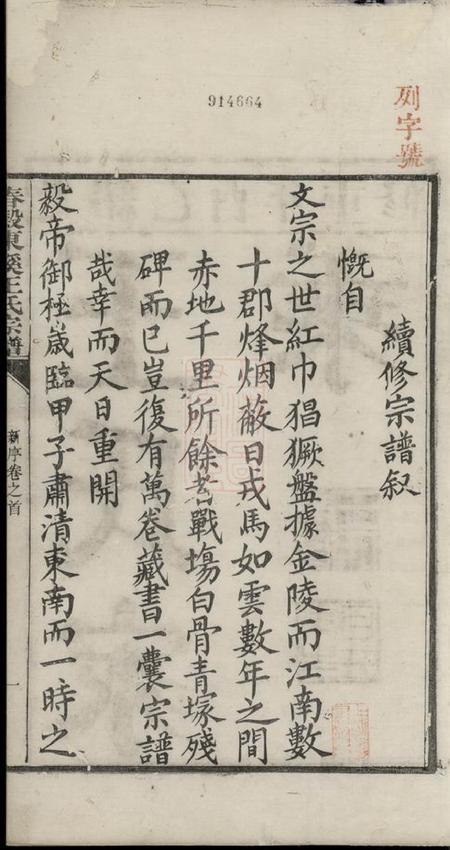 914664
列字號
續修宗譜叙
慨自
文宗之世紅巾猖獗盤據金陵而江南數
十郡烽烟蔽日戎馬如雲數年之間
赤地千里所餘者戰塲白骨青塚殘
碑而已豈復有萬卷藏書一囊宗譜
哉幸而天日重開
毅帝御極嵗臨甲子肅清東南而一時之
春穀東溪王氏宗譜
新序卷之首
一